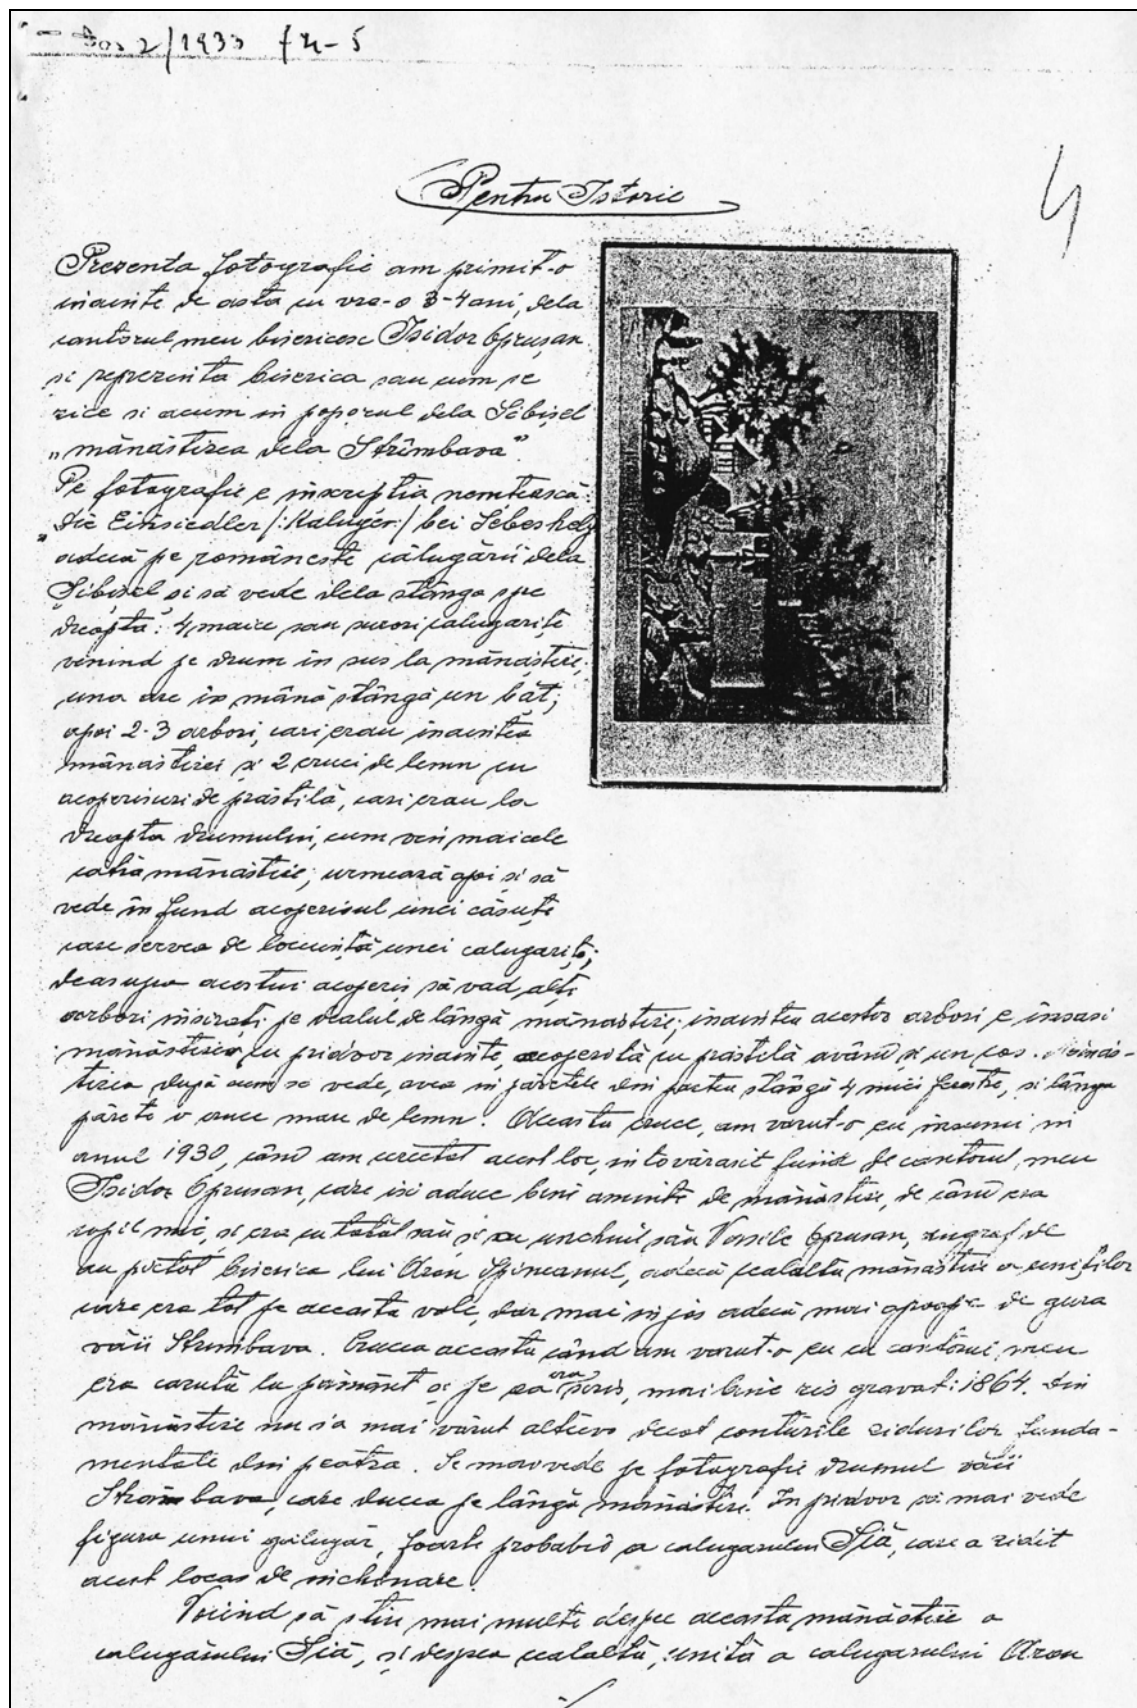 Dos 2/1933 f 4-5
4
Pentru Istorie
Prezenta fotografie am primit-o
inainte de asta cu vre-o 3-4 ani, dela
cantorul meu bisericesc Isidor Oprușan
și reprezinta biserica sau cum se
zice si acum in poporul dela Sibișel
„mănăstirea dela Strîmbava”
Pe fotografie e inscriptia nemtească:
„Die Einsiedler /:Kaluger:/ bei Sebeshely
adecă pe românește călugării dela
Sibișel si să vede dela stânga spre
dreapta: 4 maice sau surori calugarițe
venind pe drum in sus la mănăstire,
una are in mână stângă un băt;
apoi 2-3 arbori, cari erau inaintea
mânastirei și 2 cruci de lemn cu
acoperisuri de prăstilă, cari erau la
dreapta drumului, cum vin maicele
cătră mănăstire; urmează apoi și să
vede in fund acoperisul unei căsuțe
care servea de locuință unei calugarițe;
deasupra acestui acoperis să văd alți
arbori insirați pe dealul de lângă mănăstire; inaintea acestor arbori e insasi
mănăstirea cu pridvor inainte, acoperită cu prăstilă având și un cos. Mănăs-
tirea după cum se vede, avea in păretele din partea stângă 4 mici ferestre, si lângă
părete o cruce mare de lemn. Aceasta cruce, am vazut-o eu insumi in
anul 1930, când am cercetat acest loc, intovărasit fiind de cantorul meu
Isidor Oprusan, care isi aduce bine aminte de mănăstire, de când era
copil mic, si era cu tatăl său și cu unchiul său Vasile Oprusan, zugraf de
au pictat biserica lui Aron Spineanul, adecă cealaltă mănăstire a uniților
care era tot pe aceasta vale, dar mai in jos adecă mai aproape de gura
văii Strimbava. Crucea aceasta când am vazut-o eu cu cantorul meu
era cazută la pământ și pe ea era scris, mai bine zis gravat: 1864. Din
mănăstire nu s'a mai văzut altceva decat conturile zidurilor funda-
mentale din peatra. Se mai vede pe fotografie drumul văii
Strâmbava, care ducea pe lângă mănăstire. In pridvor să mai vede
figura unui călugăr, foarte probabil a calugarului Sià, care a zidit
acest locas de inchinare.
Voiind să știu mai multe despre aceasta mănăstire a
calugărului Sià, și despre cealaltă, unită a calugarului Aron